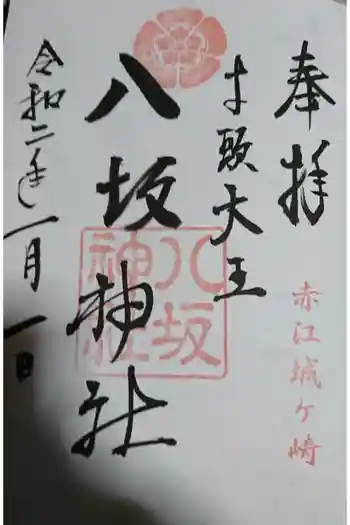 奉拝
赤江城ケ崎
牛頭大王
八坂神社
八坂神社
令和二年一月一日